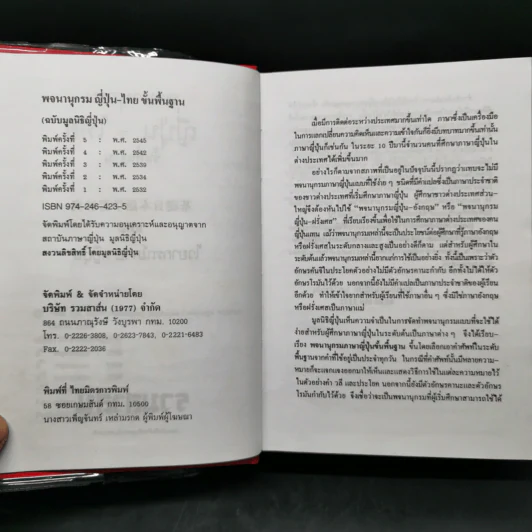 พจนานุกรม ญี่ปุ่น-ไทย ขั้นพื้นฐาน
(ฉบับมูลนิธิญี่ปุ่น)
พิมพ์ครั้งที่ 5 : พ.ศ. 2545
พิมพ์ครั้งที่ 4 : พ.ศ. 2542
พิมพ์ครั้งที่ 3 : พ.ศ. 2539
พิมพ์ครั้งที่ 2 : พ.ศ. 2534
พิมพ์ครั้งที่ 1 : พ.ศ. 2532
ISBN 974-246-423-5
จัดพิมพ์โดยได้รับความอนุเคราะห์และอนุญาตจาก
สถาบันภาษาญี่ปุ่น มูลนิธิญี่ปุ่น
สงวนลิขสิทธิ์ โดยมูลนิธิญี่ปุ่น
จัดพิมพ์ & จัดจำหน่ายโดย
บริษัท รวมสาส์น (1977) จำกัด
864 ถนนภาณุรังษี วังบูรพา กทม. 10200
โทร. 0-2226-3808, 0-2623-7843, 0-2221-6483
Fax. 0-2222-2036
พิมพ์ที่ ไทยมิตรการพิมพ์
58 ซอยเกษมสันต์ กทม. 10500
นางสาวเพ็ญจันทร์ เหล่ามรกต ผู้พิมพ์ผู้โฆษณา
เมื่อมีการติดต่อระหว่างประเทศมากขึ้นเท่าใด ภาษาซึ่งเป็นเครื่องมือ
ในการแลกเปลี่ยนความคิดเห็นและความเข้าใจกันก็ยิ่งมีบทบาทมากขึ้นเท่านั้น
ภาษาญี่ปุ่นก็เช่นกัน ในระยะ 10 ปีมานี้จำนวนคนที่ศึกษาภาษาญี่ปุ่นใน
ต่างประเทศได้เพิ่มขึ้นมาก
อย่างไรก็ตามจากสภาพที่เป็นอยู่ในปัจจุบันนี้ปรากฏว่าแทบจะไม่มี
พจนานุกรมภาษาญี่ปุ่นแบบที่ใช้ง่าย ๆ ชนิดที่มีคำแปลซึ่งเป็นภาษาประจำชาติ
ของชาวต่างประเทศที่เริ่มศึกษาภาษาญี่ปุ่น ผู้ศึกษาชาวต่างประเทศส่วน-
ใหญ่จึงต้องหันไปใช้ "พจนานุกรมญี่ปุ่น-อังกฤษ" หรือ "พจนานุกรมญี่-
ปุ่น-ฝรั่งเศส" ที่เรียบเรียงขึ้นเพื่อใช้ในการศึกษาภาษาต่างประเทศของคน
ญี่ปุ่นแทน แม้ว่าพจนานุกรมเหล่านี้จะเป็นประโยชน์ต่อผู้ศึกษาที่รู้ภาษาอังกฤษ
หรือฝรั่งเศสในระดับกลางและสูงเป็นอย่างดีก็ตาม แต่สำหรับผู้ศึกษาใน
ระดับต้นแล้วพจนานุกรมเหล่านี้ยากแก่การใช้เป็นอย่างยิ่ง ทั้งนี้เป็นเพราะว่าตัว
อักษรคันจิในประโยคตัวอย่างไม่มีตัวอักษรคานะกำกับ อีกทั้งไม่ได้ให้ตัว
อักษรโรมันไว้ด้วย นอกจากนี้ยังไม่มีคำแปลเป็นภาษาประจำชาติของผู้เรียน
อีกด้วย ทำให้เข้าใจยากสำหรับผู้เรียนที่ใช้ภาษาอื่น ๆ ซึ่งมิใช่ภาษาอังกฤษ
หรือฝรั่งเศสเป็นภาษาแม่
มูลนิธิญี่ปุ่นเห็นความจำเป็นในการจัดทำพจนานุกรมแบบที่จะใช้ได้
ง่ายสำหรับผู้ศึกษาภาษาญี่ปุ่นในระดับต้นเป็นภาษาต่าง ๆ จึงได้เรียบ-
เรียง พจนานุกรมภาษาญี่ปุ่นขั้นพื้นฐาน ขึ้นโดยเลือกเอาคำศัพท์ในระดับ
พื้นฐานจากคำที่ใช้อยู่เป็นประจำทุกวัน ในกรณีที่คำศัพท์นั้นมีหลายความ-
หมายก็จะแจกแจงออกมาให้เห็นและแสดงวิธีการใช้ในแต่ละความหมายไว้
ในตัวอย่างคำ วลี และประโยค นอกจากนี้ยังมีตัวอักษรคานะและตัวอักษร
โรมันกำกับไว้ด้วย จึงเชื่อว่าจะเป็นพจนานุกรมที่ผู้เริ่มศึกษาสามารถใช้ได้